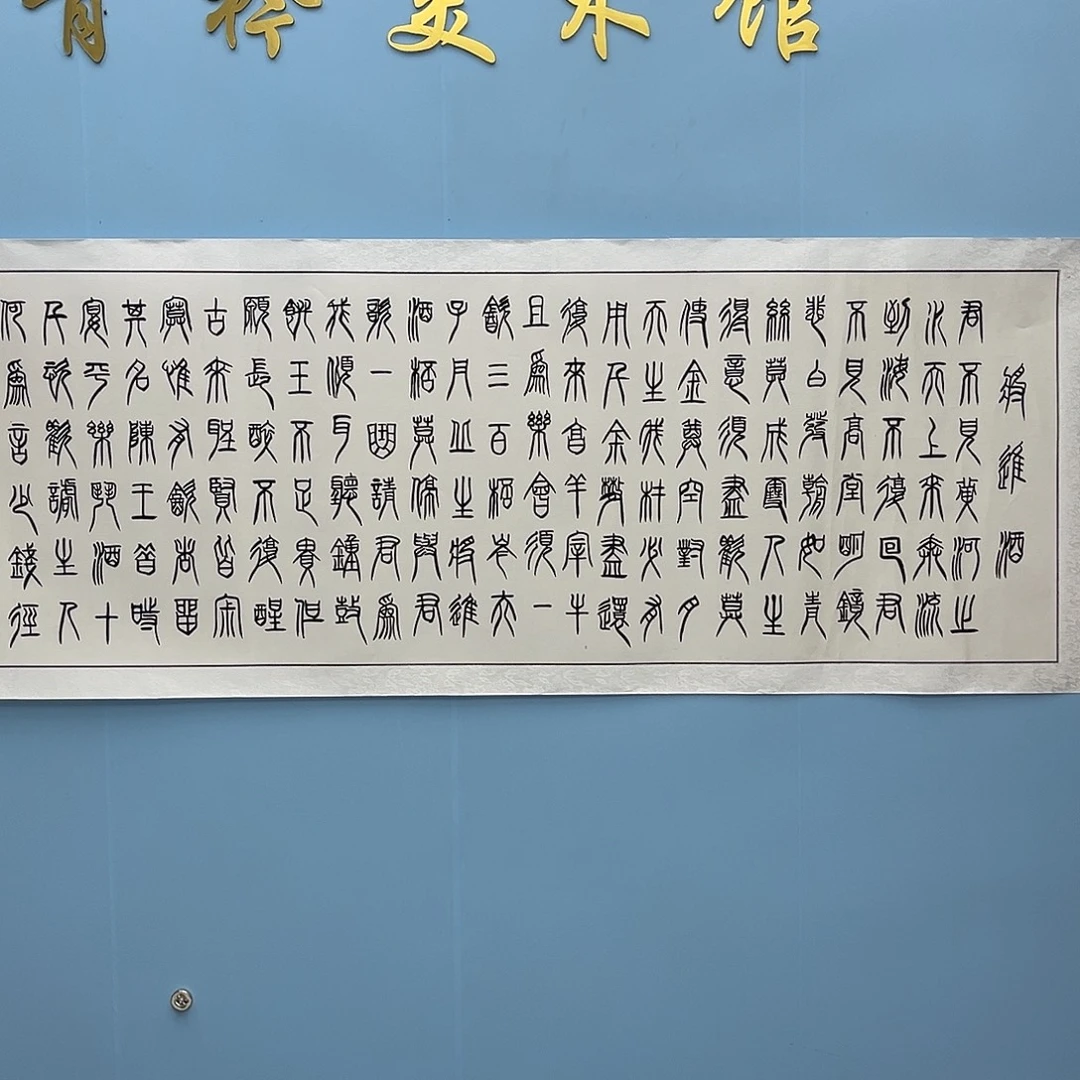 美术馆
將進酒
君不見黃河之
水天上來奔流
到海不復回君
不見高堂明鏡
悲白髮朝如青
絲莫成雪人生
得意須盡歡莫
使金尊空對月
天生我材必有
用千金散盡還
復來烹羊宰牛
且為樂會須一
飲三百杯岑夫
子丹丘生將進
酒杯莫停與君
歌一曲請君為
我傾耳聽鐘鼓
饌玉不足貴但
願長醉不復醒
古來聖賢皆寂
寞惟有飲者留
其名陳王昔時
宴平樂斗酒十
千恣歡謔主人
何為言少錢徑